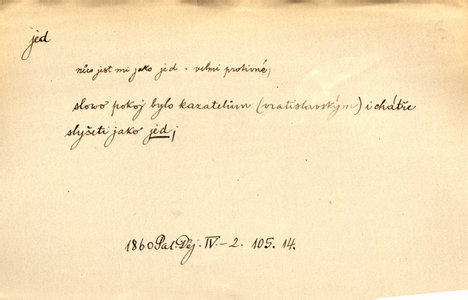 jed
něco jest mi jako jed - velmi protivné,
slowo pokoj bylo kazatelům (vratislavským) i chátře
slyšeti jako jed,
1860 Pal. Děj. IV.-2. 105. 14.